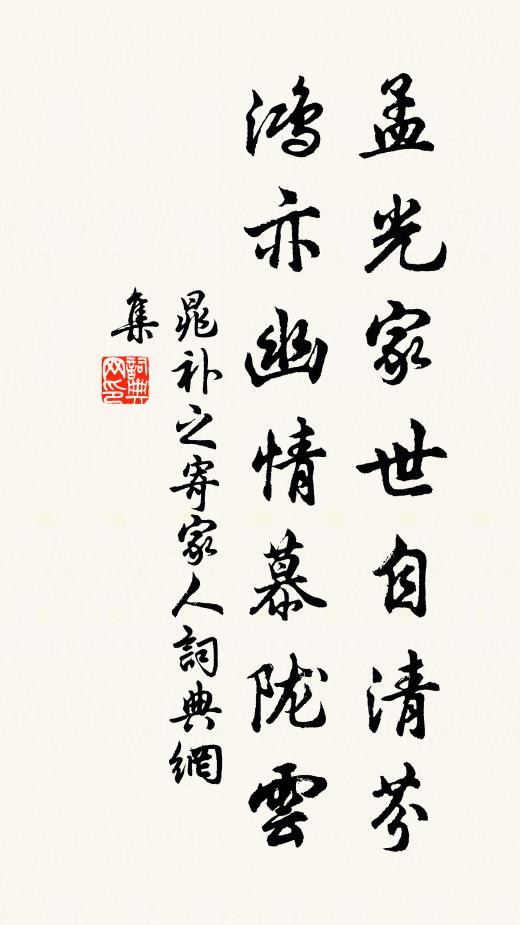 孟光家世自清芬
鸿亦幽情慕陇雲
晁补之寄家人詞典網
集
詞典
网印